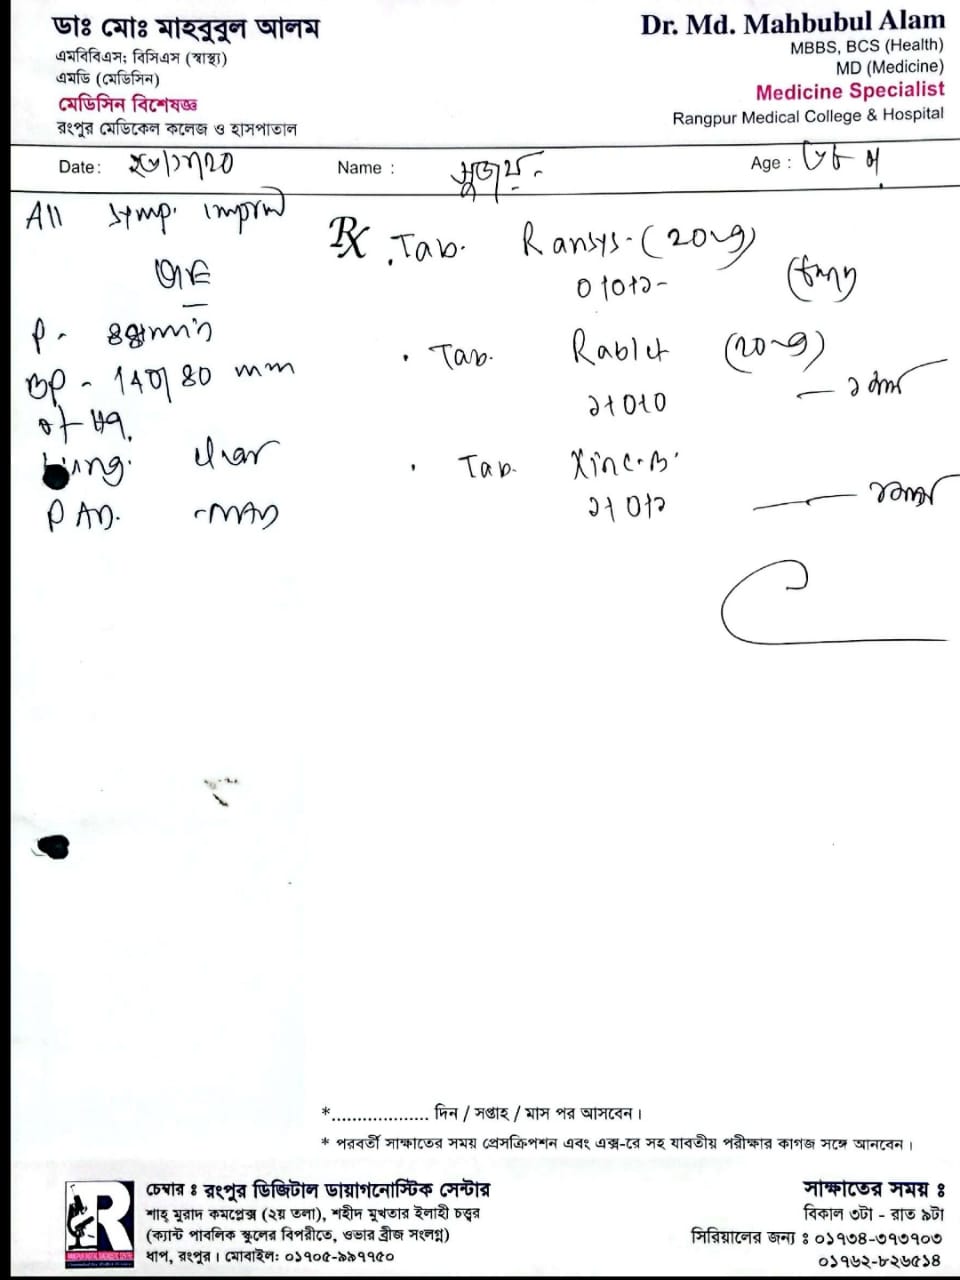 ডাঃ মোঃ মাহবুবুল আলম
এমবিবিএস; বিসিএস (স্বাস্থ্য)
এমডি (মেডিসিন)
মেডিসিন বিশেষজ্ঞ
রংপুর মেডিকেল কলেজ ও হাসপাতাল
Dr. Md. Mahbubul Alam
MBBS, BCS (Health)
MD (Medicine)
Medicine Specialist
Rangpur Medical College & Hospital
Date:
Name :
Age :
All symp.
P -
BP - 140/80 mm
of Hg.
Lung.
Rx
Tab. Ransys (20mg)
0+0+১
Tab. (20mg)
১+0+0
Tab. Xinc-B
১+0+১
*................... দিন / সপ্তাহ / মাস পর আসবেন।
* পরবর্তী সাক্ষাতের সময় প্রেসক্রিপশন এবং এক্স-রে সহ যাবতীয় পরীক্ষার কাগজ সঙ্গে আনবেন।
R
চেম্বার ঃ রংপুর ডিজিটাল ডায়াগনোস্টিক সেন্টার
শাহ্ মুরাদ কমপ্লেক্স (২য় তলা), শহীদ মুখতার ইলাহী চত্ত্বর
(ক্যান্ট পাবলিক স্কুলের বিপরীতে, ওভার ব্রীজ সংলগ্ন)
ধাপ, রংপুর। মোবাইল: ০১৭০৫-৯৯৭৭৫০
সাক্ষাতের সময় ঃ
বিকাল ৩টা - রাত ৯টা
সিরিয়ালের জন্য ঃ ০১৭৩৪-৩৭৩৭০৩
০১৭৬২-৮২৬৫১৪